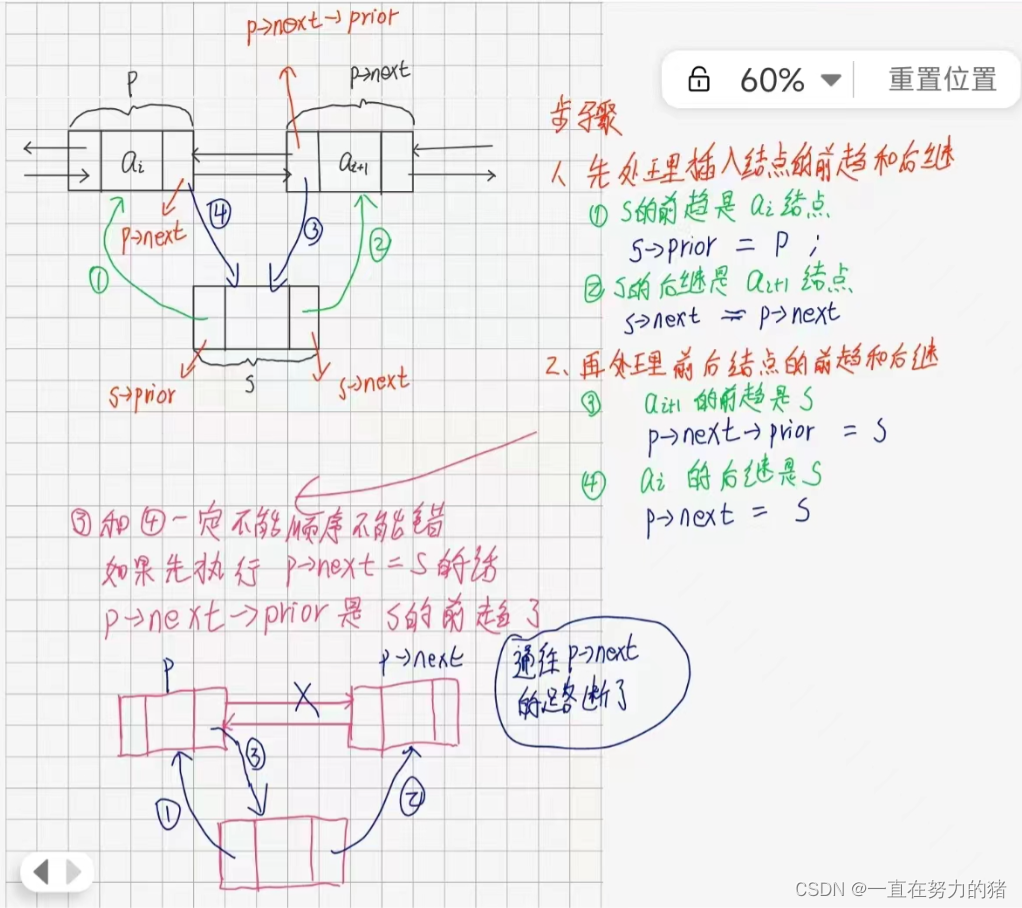 p→next→prior
P
p→next
60%
重置位置
ai
ai+1
p→next
①
②
③
④
s→prior
S
s→next
步骤
1、先处理插入结点的前趋和后继
① S的前趋是 ai 结点
s→prior = P ;
② S的后继是 ai+1 结点
s→next = p→next
2、再处理前后结点的前趋和后继
③ ai+1 的前趋是 S
p→next→prior = S
④ ai 的后继是 S
p→next = S
③和④一定不能顺序不能错
如果先执行 p→next = S 的话
p→next→prior 是 S的前趋了
P
p→next
通往 p→next
的路断了
①
③
②
CSDN @一直在努力的猪